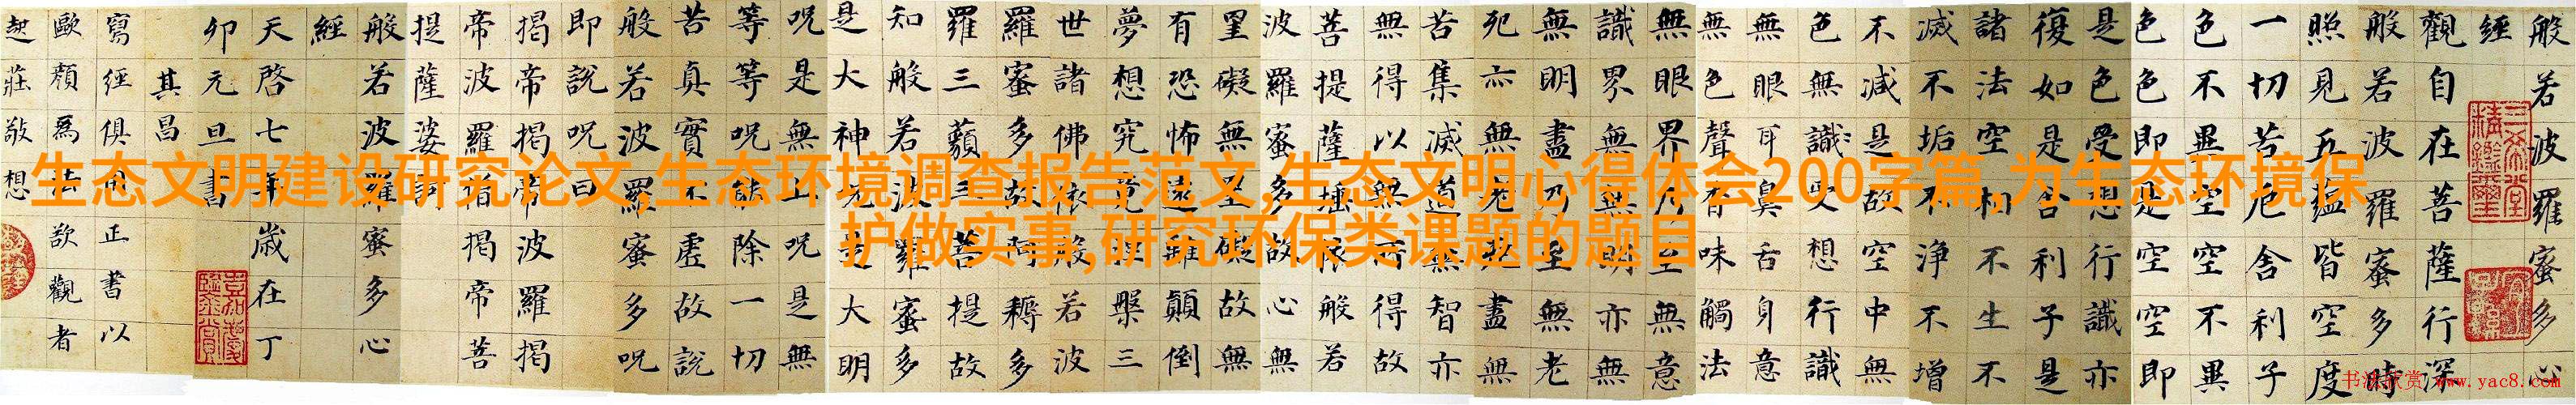 生态文明建设研究论文,生态环境调查报告范文,生态文明心得体会200字篇,为生态环境保
护做实事,研究环保类课题的题目
般若波羅蜜多心
經
觀自在菩薩行深
般若波羅蜜多時
照見五蘊皆空度
一切苦厄舍利子
色不異空空不異
色色即是空空即
是色受想行識亦
復如是舍利子是
諸法空相不生不
滅不垢不淨不增
不減是故空中無
色無識受想行識
無眼耳鼻舌身意
無色聲香味觸法
無眼界乃至無意
識界無無明亦無
無明盡乃至無老
死亦無老死盡無
苦集滅道無智亦
無得以無所得故
菩提薩埵依般若
波羅蜜多故心無
罣礙無罣礙故無
有恐怖遠離顛倒
夢想究竟涅槃三
世諸佛依般若波
羅蜜多故阿耨多
羅三藐三菩提故
知般若波羅蜜多
是大神呪是大明
呪是無上呪是無
等等呪能除一切
苦真實不虛故說
般若波羅蜜多呪
即說呪曰
揭帝揭帝波羅揭
帝波羅僧揭帝菩
提薩婆訶
般若波羅蜜多心
經
天啓七年歲在丁
卯元旦書
其昌
寫經俱用正書以
歐顏為法欲觀者
起莊敬想
书法欣赏 www.yac8.com